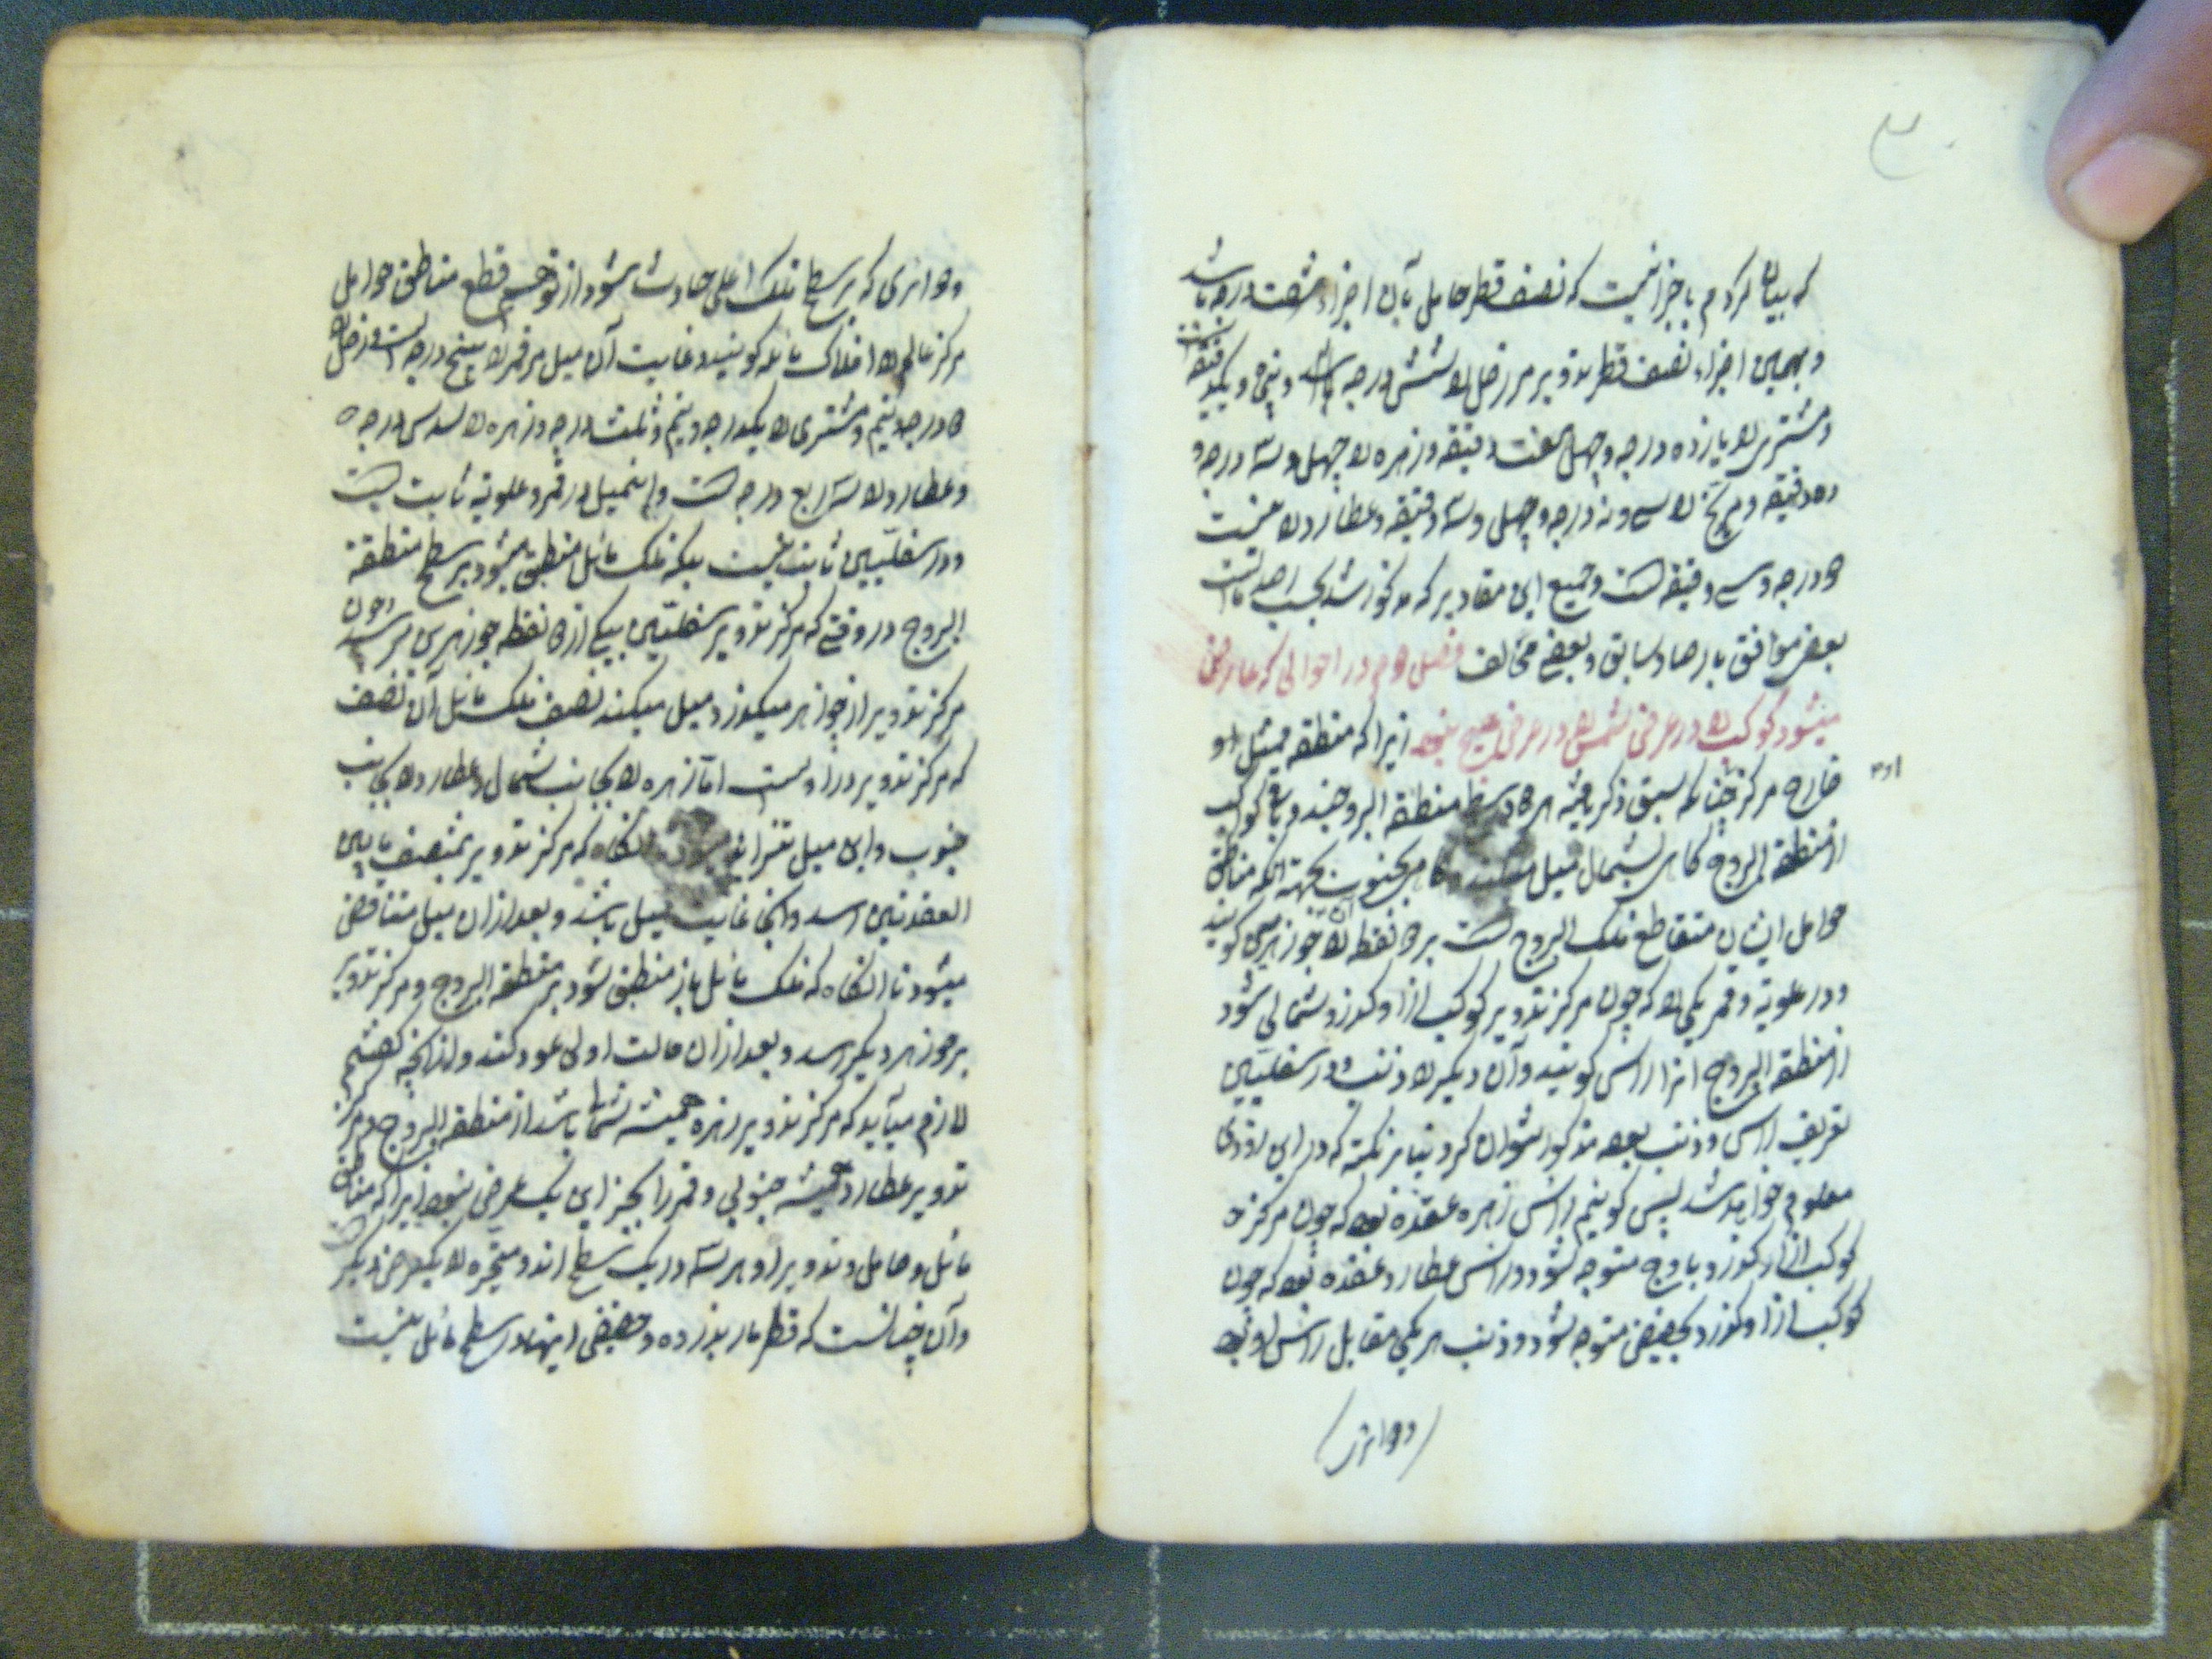 ۳
که بیان کردیم باجزائیست که نصف قطر حامل بآن اجزاء شصت درجه باشد
و بهمین اجزاء نصف قطر تدویر مر زحل را شش درجه باشد و نیم و یکدقیقه
و مشتری را یازده درجه و چهل هفت دقیقه و زهره را چهل و سه درجه و
ده دقیقه و مریخ را سی و نه درجه و چهل و سه دقیقه و عطارد را بیست
و دو درجه و سی دقیقه است و جمیع این مقادیر که مذکور شد بحسب رصد ماست
بعضی موافق بارصاد سابق و بعضی مخالف فصل دوم در احوالی که عارض
میشود کواکب را در عرض شمس را در عرض هیچ نبود زیرا که منطقه ممثل او و
خارج مرکز چنانکه سبق ذکر یافته هر دو در سطح منطقة البروجند و باقی کواکب
از منطقة البروج گاهی بشمال میل میکنند و گاهی بجنوب بجهة آنکه مناطق
حوامل ایشان متقاطع فلک البروج است بر دو نقطه که آن را جوزهرین گویند
و در علویه و قمر یکی را که چون مرکز تدویر کوکب ازو گذرد شمالی شود
از منطقة البروج آنرا راس گویند و آن دیگر را ذنب و در سفلیین
تعریف راس و ذنب بوجه مذکور نتوان کرد بنابر نکته که در این زودی
معلوم خواهد شد پس گوییم راس زهره عقده بود که چون مرکز
کوکب ازو گذرد باوج متوجه شود و راس عطارد عقده بود که چون
کوکب ازو گذرد بحضیض متوجه شود و ذنب هر یکی مقابل راس او بود
دوائری
دوائری که بر سطح فلک اعلی حادث شود از توهم قطع مناطق حوامل
مرکز عالم را افلاک مائله گویند و غایت آن میل مر قمر را پنج درجه است و زحل را
دو درجه و نیم و مشتری را یکدرجه و نیم و ثلث درجه و زهره را سدس درجه
و عطارد را سه ربع درجه است و این میل در قمر و علویه ثابت است
و در سفلیین ثابت نیست بلکه فلک مائل منطبق میشود بر سطح منطقة
البروج در وقتی که مرکز تدویر سفلیین بیکی از دو نقطه جوزهرین برسد و چون
مرکز تدویر از جوزهر میگذرد میل میکند نصف فلک مائل آن نصف
که مرکز تدویر درو است اما زهره را بجانب شمال و عطارد را بجانب
جنوب و این میل متزاید میشود تا آنگاه که مرکز تدویر بمنتصف مابین
العقدتین رسد و آنجا غایت میل باشد و بعد از آن میل متناقص
میشود تا آنگاه که فلک مائل باز منطبق شود بر منطقة البروج و مرکز تدویر
بر جوزهر دیگر رسد و بعد از آن حالت اولی عود کند و از آنچه گفتیم
لازم میآید که مرکز تدویر زهره همیشه شمالی باشد از منطقة البروج و مرکز
تدویر عطارد همیشه جنوبی و قمر را بجز این یک عرض نبود زیرا که مناطق
مائل و حامل و تدویر او هر سه در یک سطح اند و متحیره را یکعرض دیگر
و آن چنانست که قطر مار بذروه و حضیض اینها در سطح مائل نیست